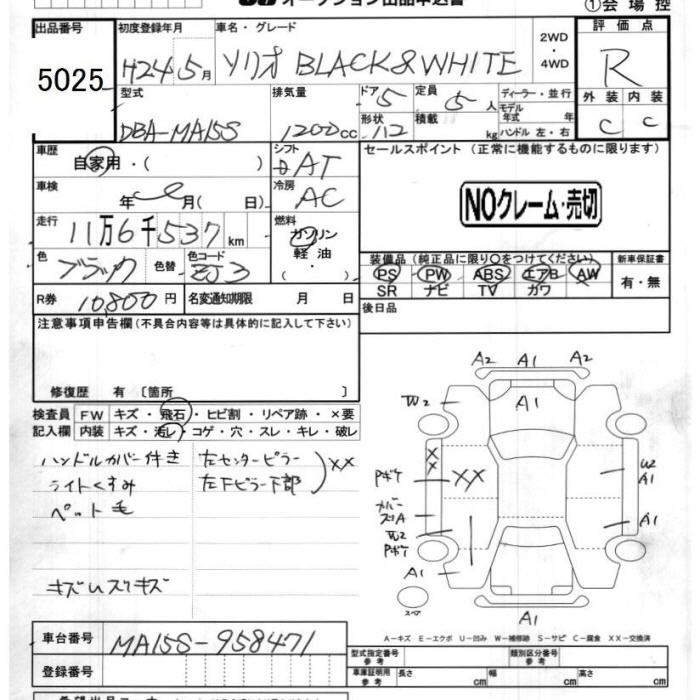 オークション出品申込書
①会場控
出品番号 初度登録年月 車名・グレード 評価点
5025 H24 5月 ソリオ BLACK&WHITE 2WD・4WD R
型式 排気量 ドア 5 定員 5人 ディーラー・並行 外装 内装
DBA-MA15S 1200cc 形状 積載 kg モデル年式 年 ハンドル 左・右 C C
車歴 シフト セールスポイント(正常に機能するものに限ります)
自家用・( ) AT
車検 冷房
年 月(日) AC NOクレーム・売切
走行 燃料
11万6千537km ガソリン・軽油・( )
装備品(純正品に限り○をつけてください) 新車保証書
色 色替 色コード PS PW ABS エアB AW 有・無
ブラック ZJ3 SR ナビ TV カワ
R券 10,800円 名変通知期限 月 日 後日品
注意事項申告欄(不具合内容等は具体的に記入して下さい)
修復歴 有 〔箇所 〕
検査員 FW キズ・飛石・ヒビ割・リペア跡・×要
記入欄 内装 キズ・汚レ・コゲ・穴・スレ・キレ・破レ
ハンドルカバー付き 左センターピラー
ライトくすみ 左下ピラー下部 XX
ペット毛
キズUスリキズ
A2 A1 A2
A1
W2
XX
XX
Pボケ
U2
A1
カバースリA
A1
W2
Pボケ
A1
A1
スペア
A-キズ E-エクボ U-凹み W-補修跡 S-サビ C-腐食 XX-交換済
車台番号 MA15S-958471 型式指定番号 参考 類別区分番号 参考
登録番号 車庫証明用 参考 長さ cm 幅 cm 高さ cm